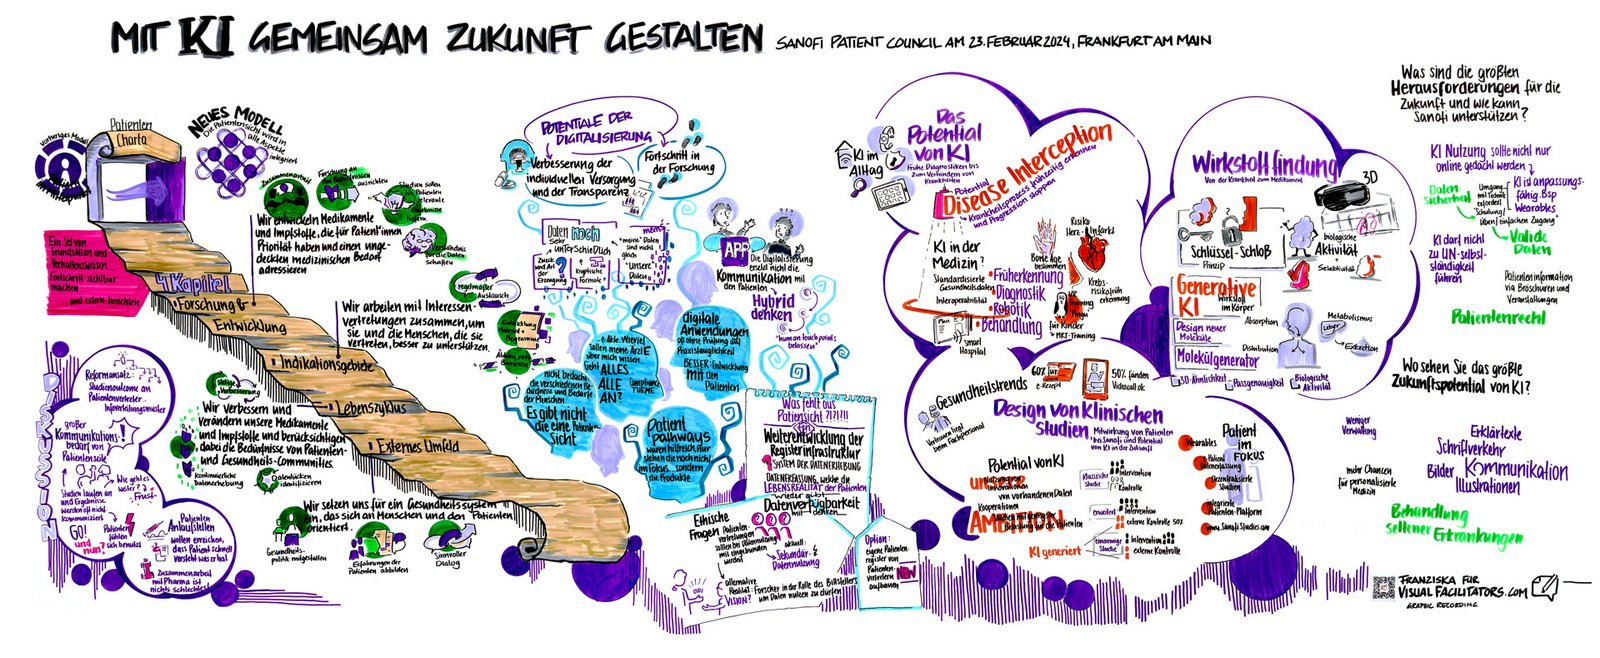 MIT KI GEMEINSAM ZUKUNFT GESTALTEN
SANOFI PATIENT COUNCIL AM 23. FEBRUAR 2024, FRANKFURT AM MAIN
Patienten
Charta
NEUES MODELL
Die Patientensicht wird in
alle Aspekte
integriert
Ein Set von
Grundsätzen und
Verhaltensweisen
Fortschritt sichtbar
machen
und extern berichten
4 Kapitel
Forschung &
Entwicklung
Indikationsgebiete
Lebenszyklus
Externes Umfeld
Zusammenarbeit
Wir entwickeln Medikamente
und Impfstoffe, die für Patient*innen
Priorität haben und einen unge-
deckten medizinischen Bedarf
adressieren
regelmäßiger
Austausch
Wir arbeiten mit Interessen-
vertretungen zusammen, um
Sie und die Menschen, die sie
vertreten, besser zu unterstützen.
Wir verbessern und
verändern unsere Medikamente
und Impfstoffe und berücksichtigen
dabei die Bedürfnisse von Patienten-
und Gesundheits-Communities.
Kontinuierliche
Datenerhebung
Datenlücken
identifizieren
Wir setzen uns für ein Gesundheitssystem
ein, das sich an Menschen und den Patienten
orientiert.
Gesundheits-
politik mitgestalten
Erfahrungen der
Patienten abbilden
Sinnvoller
Dialog
DISKUSSION
Reformansatz:
Studienvolumen an
Patientenvertreter
großer
Kommunikations-
bedarf von
Patientenseite
Studien laufen an
und Ergebnisse
werden oft nicht
kommuniziert
Wie geht es
weiter?
Frust
GO!
und
nun?
Patienten
fühlen
sich benutzt
Patienten
Anlaufstellen
wollen erreichen,
dass Patient schnell
versteht was er hat
Zusammenarbeit
mit Pharma ist
nichts schlechtes!
POTENTIALE DER
DIGITALISIERUNG
Verbesserung der
individuellen Versorgung
und der Transparenz
Fortschritt in
der Forschung
Daten noch
sehr
unterschiedlich
Zweck
und Art
der
Erzeugung
kryptische
Formate
"meine" Daten
sind nicht
gleich
"unsere"
Daten
APP
Die Digitalisierung
ersetzt nicht die
Kommunikation mit
den Patienten
Hybrid
denken
"human touch points
belassen"
digitale
Anwendungen
oft ohne Prüfung auf
Praxistauglichkeit
BESSER: Entwicklung
mit den
Patienten
e Akte: Wieviel
sollen meine Ärzte
über mich wissen
geht ALLES
ALLE
AN?
Compliance
THEMA
nicht bedacht:
die verschiedenen Be-
dürfnisse und Bedarfe
der Menschen.
Es gibt nicht
die eine Patienten
Sicht
Patient
pathways
waren hilfreich, nur
stehen die noch nicht
im Fokus sondern
die Produkte
Was fehlt aus
Patientsicht ?!?!?!!
Weiterentwicklung der
Registerinfrastruktur
SYSTEM DER DATENERHEBUNG
DATENERFASSUNG, welche die
LEBENSREALITÄT der Patienten
wieder gibt
Datenverfügbarkeit
mit denken
Ethische
Fragen
Patienten-
vertretungen
sollen bei Datennutzung
mit eingebunden
werden
aktuell:
Sekundär-
Datennutzung
alternative
Realität:
VISION?
Forscher in der Rolle des Bittstellers
um Daten nutzen zu dürfen
Option:
eigene Patienten-
register von
Patienten-
vertretern
aufbauen
NEW
KI im
Alltag
Das
Potential
von KI
frühe Diagnostiken bis
zum Verhindern von
Krankheiten
Potential
Disease Interception
Krankheitsprozess frühzeitig erkennen
und Progression stoppen
KI in der
Medizin?
Standardisierte
Gesundheitsdaten
Interoperabilität
Smart
Hospital
Früherkennung
Diagnostik
Robotik
Behandlung
Bone Age
bestimmen
Risiko
Herzinfarkt
Krebs-
risiko früh
erkennung
für Kinder
MRT-Training
Gesundheitstrends
Vertrauen liegt
beim Fachpersonal
60% für
e Rezept
50% fänden
Videocall ok
Design von Klinischen
Studien
Mitwirkung von Patienten
bei Sanofi und Potential
von KI in der Zukunft
Potential von KI
von vorhandenen Daten
Kooperationen
KI generiert
Klassische
Studie
Intervention
Kontrolle
erweitert
Intervention
externe Kontrolle 50%
Einarmige
Studie
Intervention
externe Kontrolle
Patient
im
FOKUS
Wearables
Dezentralisierte
Studien
integrierte
Patienten-Plattform
www.SanofiStudies.com
Wirkstofffindung
Von der Krankheit zum Medikament
3D
Schlüssel-Schloß
Prinzip
biologische
Aktivität
Selektivität
Generative
KI
Wirkstoff
im Körper
Absorption
Metabolismus
Leber
Distribution
Exkretion
Design neuer
Moleküle
Molekülgenerator
3D-Ähnlichkeit
Passgenauigkeit
Biologische
Aktivität
Was sind die größten
Herausforderungen für die
Zukunft und wie kann
Sanofi unterstützen?
KI Nutzung sollte nicht nur
online gedacht werden
Daten
Sicherheit
Umgang
mit Technik
erfordert
"Schulung"
über einfachen Zugang
KI ist anpassungs-
fähig Bsp
Wearables
Valide
Daten
KI darf nicht
zu UN-selbst-
ständigkeit
führen
Patienteninformation
via Broschüren und
Veranstaltungen
Patientenrecht
Wo sehen Sie das größte
Zukunftspotential von KI?
Weniger
Verwaltung
Erklärtexte
Schriftverkehr
Bilder Kommunikation
Illustrationen
mehr Chancen
für personalisierte
Medizin
Behandlung
seltener Erkrankungen
FRANZISKA FÜR
VISUALFACILITATORS.COM
GRAPHIC RECORDING